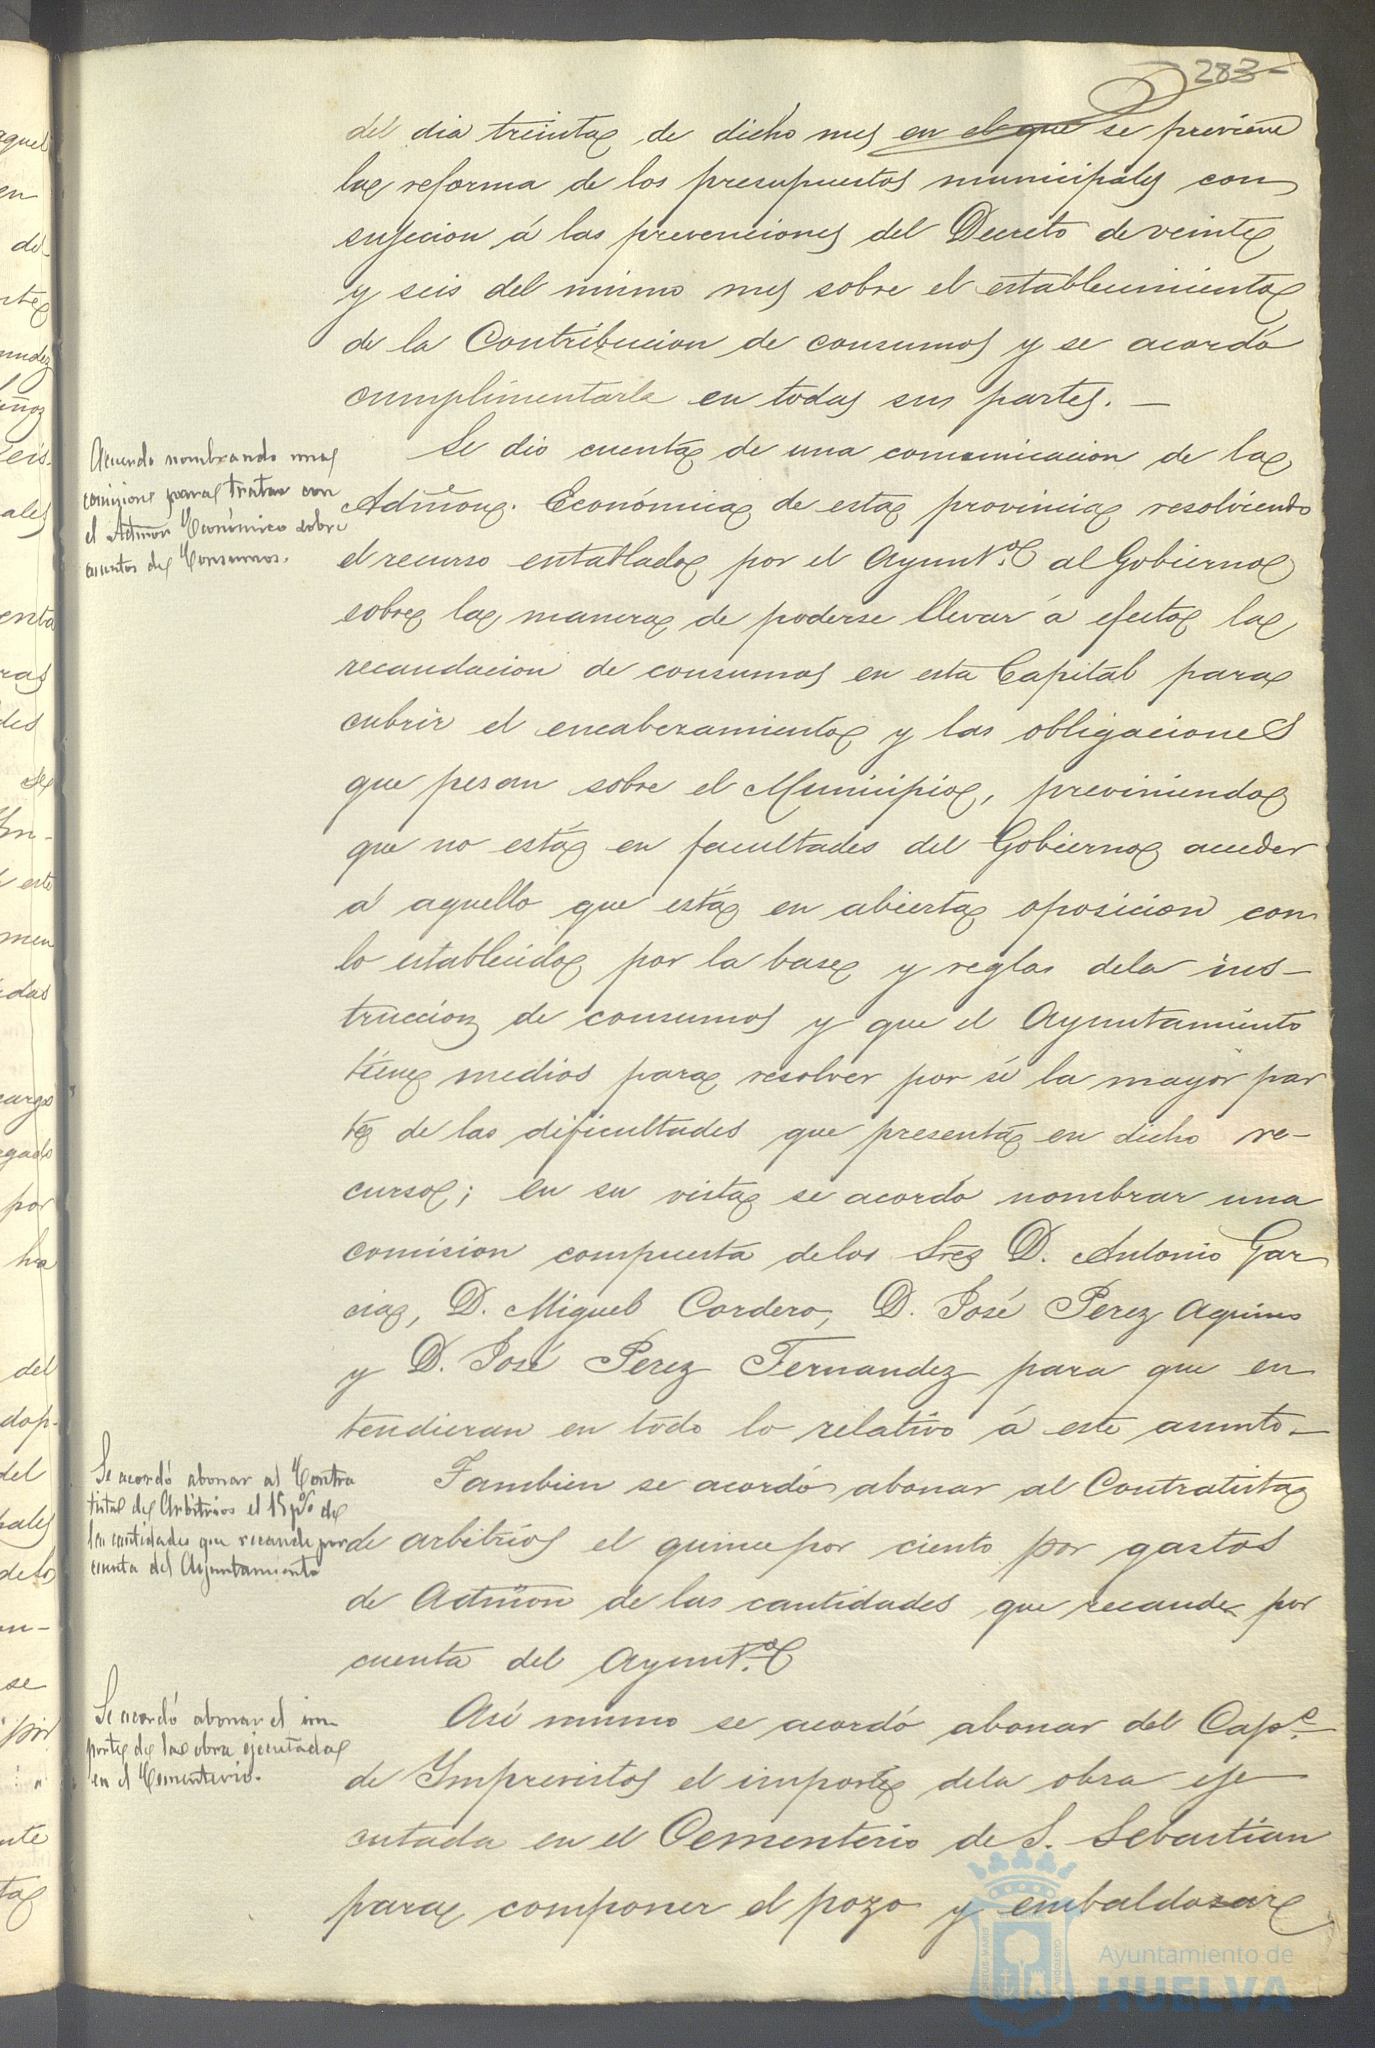 283
del dia treinta de dicho mes en el que se previene
la reforma de los presupuestos municipales con
sujecion á las prevenciones del Decreto de veinte
y seis del mismo mes sobre el establecimiento
de la Contribucion de consumos y se acordó
cumplimentarla en todas sus partes. —
Acuerdo nombrando una
comision para tratar con
el Admon Económico sobre
asuntos de Consumos.
Se dio cuenta de una comunicacion de la
Admon. Económica de esta provincia resolviendo
el recurso entablado por el Ayunt.o al Gobierno
sobre la manera de poderse llevar á efecto la
recaudacion de consumos en esta Capital para
cubrir el encabezamiento y las obligaciones
que pesan sobre el Municipio, previniendo
que no está en facultades del Gobierno acceder
á aquello que está en abierta oposicion con
lo establecido por la base y reglas dela ins-
truccion de consumos y que el Ayuntamiento
tiene medios para resolver por sí la mayor par
te de las dificultades que presenta en dicho re-
curso; en su vista se acordo nombrar una
comision compuesta delos Sres D. Antonio Gar
cia, D. Miguel Cordero, D. José Perez Aquino
y D. José Perez Fernandez para que en
tendieran en todo lo relativo á este asunto. —
Se acordó abonar al Contra
tista de Arbitrios el 15 p% de
las cantidades que recaude por
cuenta del Ayuntamiento
Tambien se acordó abonar al Contratista
de arbitrios el quince por ciento por gastos
de Admon de las cantidades que recaude por
cuenta del Ayunt.o
Se acordó abonar el im
porte de la obra ejecutada
en el Cementerio.
Asi mismo se acordó abonar del Cap.o
de Imprevistos el importe dela obra eje
cutada en el Cementerio de S. Sebastian
para componer el pozo y embaldosar
Ayuntamiento de
HUELVA